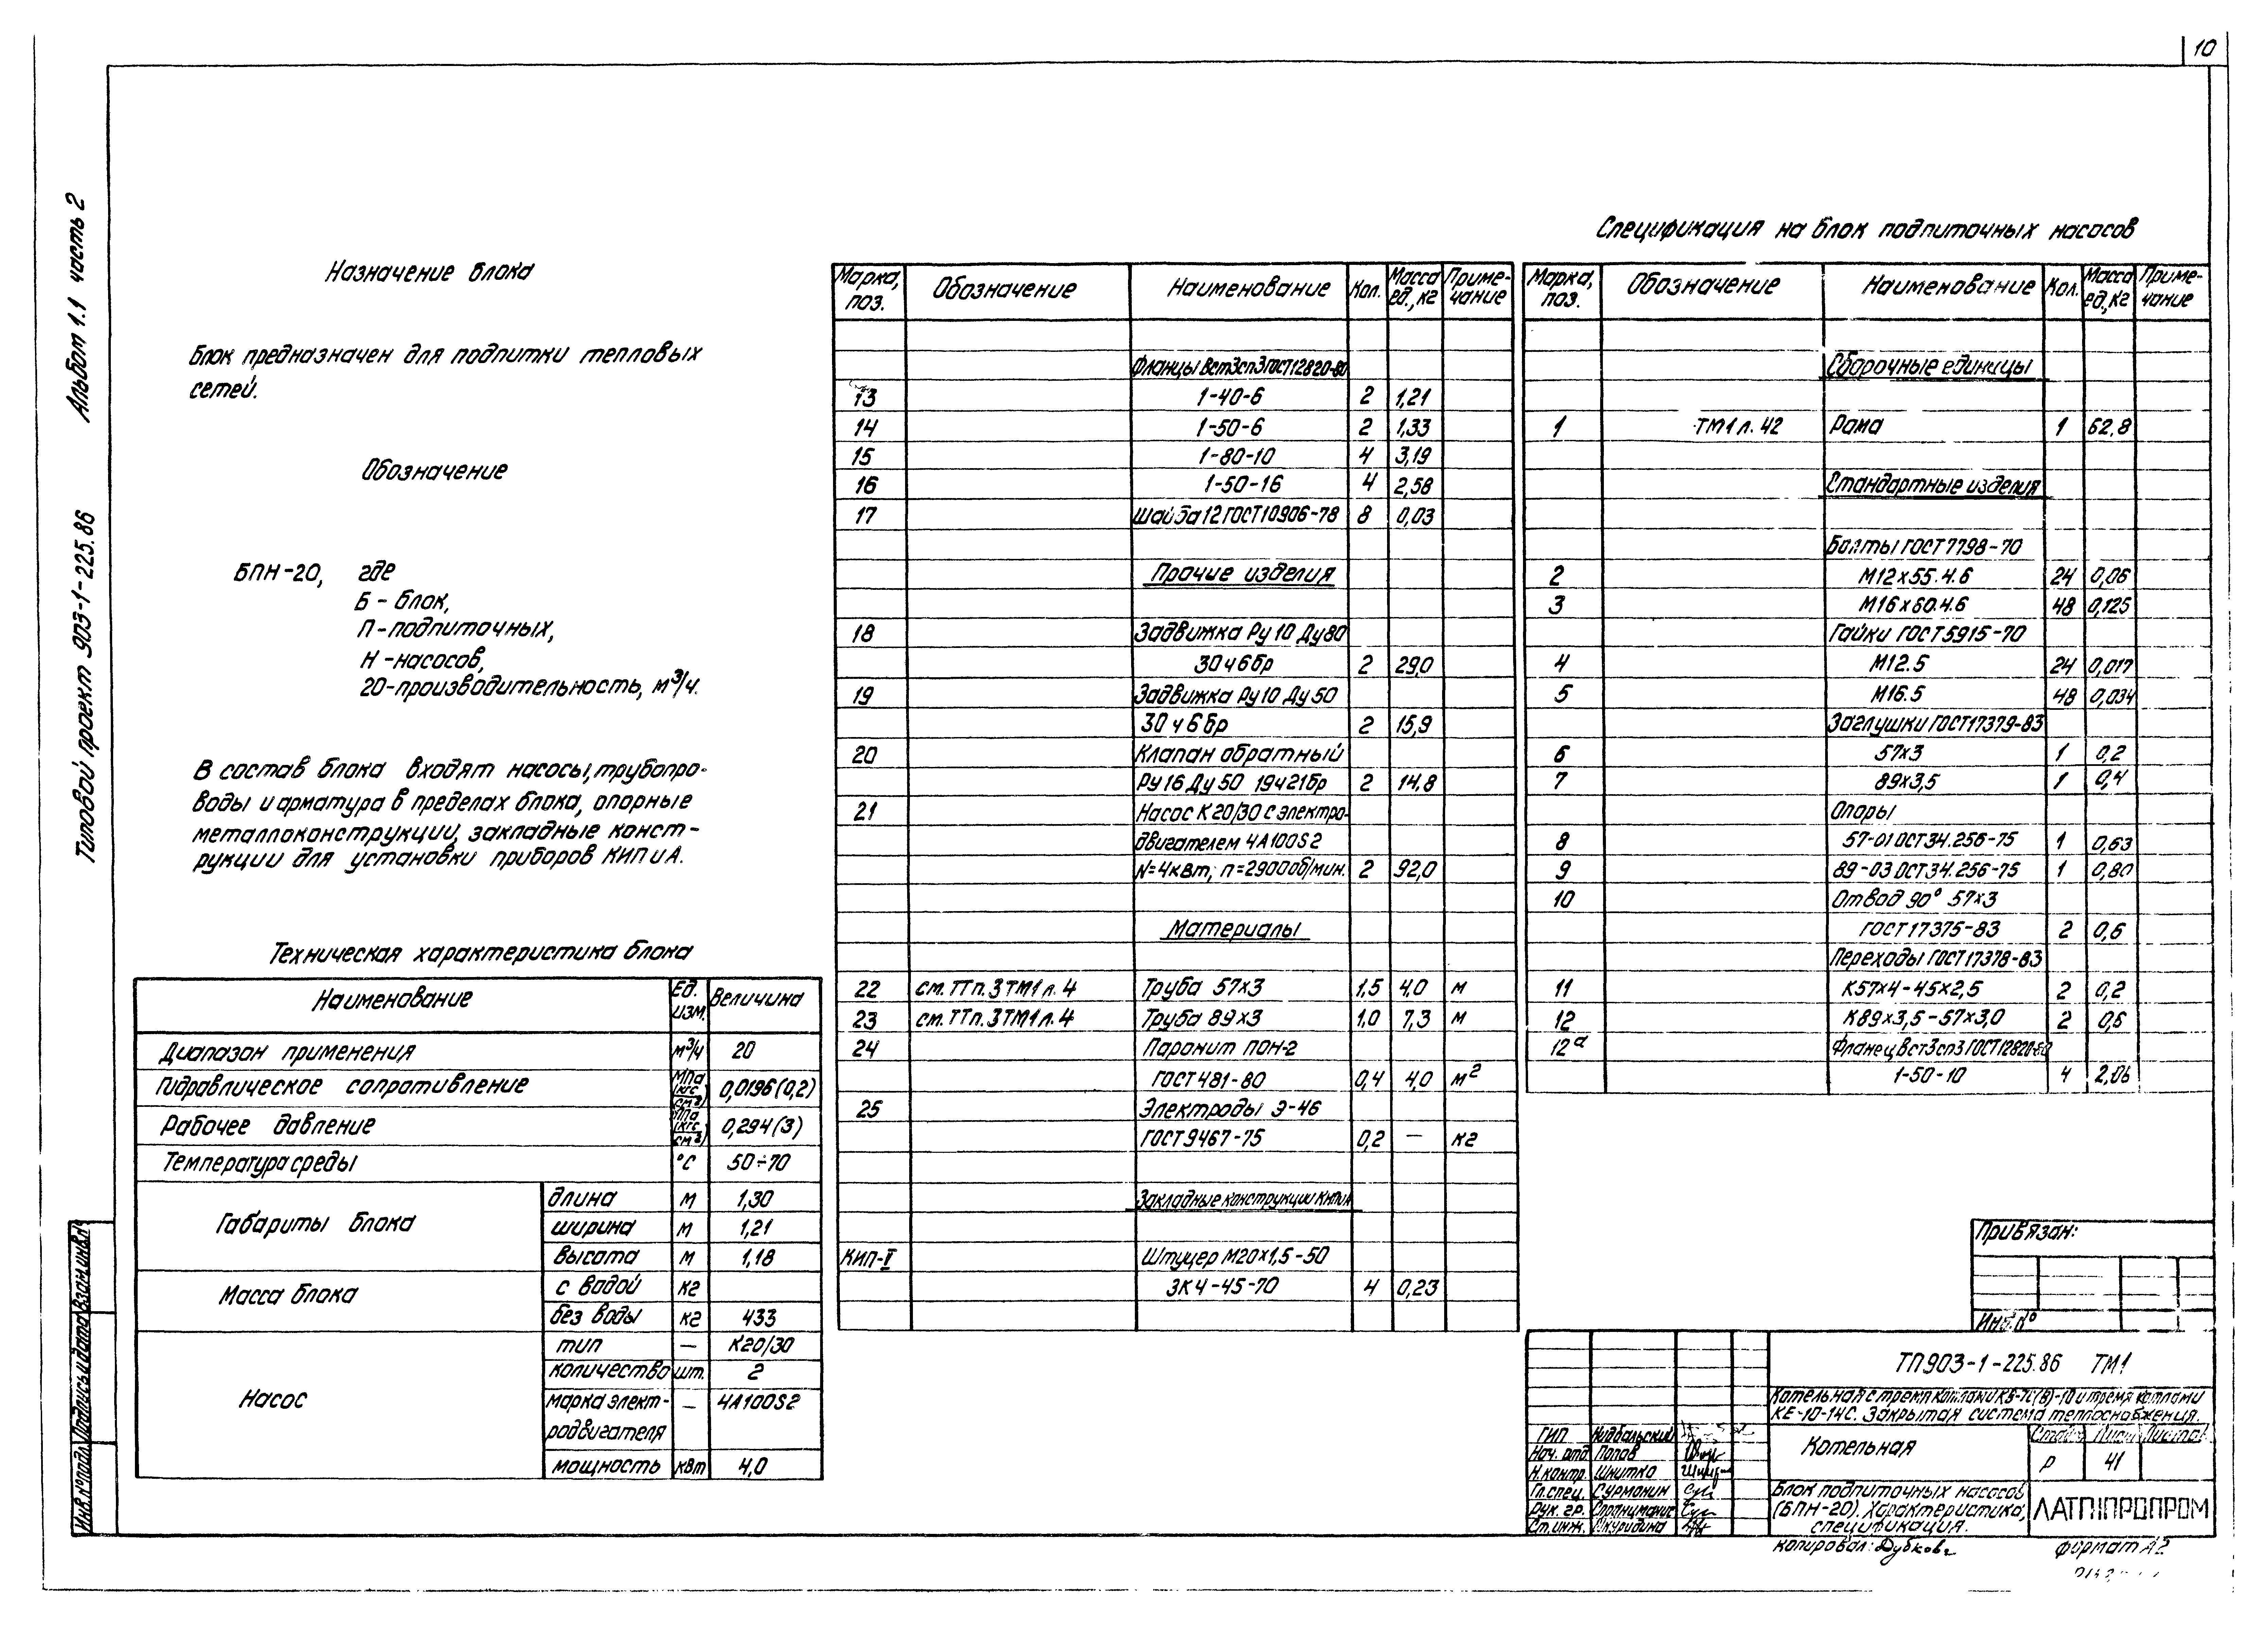 10
Альбом 1.1 часть 2
Типовой проект 903-1-225.86
Назначение блока
Блок предназначен для подпитки тепловых
сетей.
Обозначение
БПН-20, где
Б - блок,
П - подпиточных,
Н - насосов,
20 - производительность, м³/ч.
В состав блока входят насосы, трубопро-
воды и арматура в пределах блока, опорные
металлоконструкции, закладные конст-
рукции для установки приборов КИП и А.
Техническая характеристика блока
Наименование Ед. изм. Величина
Диапазон применения м³/ч 20
Гидравлическое сопротивление МПа (кгс/см²) 0,0196 (0,2)
Рабочее давление МПа (кгс/см²) 0,294 (3)
Температура среды °С 50÷70
Габариты блока длина м 1,30
ширина м 1,21
высота м 1,18
Масса блока с водой кг
без воды кг 433
Насос тип — К20/30
количество шт. 2
марка элект- — 4А100S2
родвигателя
мощность квт 4,0
Марка, поз. Обозначение Наименование Кол. Масса ед., кг Приме-чание
Фланцы Вст3сп3 ГОСТ 12820-80
13 1-40-6 2 1,21
14 1-50-6 2 1,33
15 1-80-10 4 3,19
16 1-50-16 4 2,58
17 Шайба 12 ГОСТ 10906-78 8 0,03
Прочие изделия
18 Задвижка Ру 10 Ду 80
30ч6бр 2 29,0
19 Задвижка Ру 10 Ду 50
30ч6бр 2 15,9
20 Клапан обратный
Ру 16 Ду 50 19ч21бр 2 14,8
21 Насос К 20/30 с электро-
двигателем 4А100S2
N=4квт; п=2900об/мин. 2 92,0
Материалы
22 см. ТТ п.3 ТМ1 л.4 Труба 57×3 1,5 4,0 м
23 см. ТТ п.3 ТМ1 л.4 Труба 89×3 1,0 7,3 м
24 Паронит ПОН-2
ГОСТ 481-80 0,4 4,0 м²
25 Электроды Э-46
ГОСТ 9467-75 0,2 — кг
Закладные конструкции КИПиА
КИП-I Штуцер М20×1,5-50
ЗК4-45-70 4 0,23
Спецификация на блок подпиточных насосов
Марка, поз. Обозначение Наименование Кол. Масса ед., кг Приме-чание
Сборочные единицы
1 ТМ1 л. 42 Рама 1 62,8
Стандартные изделия
Болты ГОСТ 7798-70
2 М12×55.4.6 24 0,06
3 М16×60.4.6 48 0,125
Гайки ГОСТ 5915-70
4 М12.5 24 0,017
5 М16.5 48 0,034
Заглушки ГОСТ 17379-83
6 57×3 1 0,2
7 89×3,5 1 0,4
Опоры
8 57-01 ОСТ 34.256-75 1 0,63
9 89-03 ОСТ 34.256-75 1 0,80
10 Отвод 90° 57×3
ГОСТ 17375-83 2 0,6
Переходы ГОСТ 17378-83
11 К57×4-45×2,5 2 0,2
12 К89×3,5-57×3,0 2 0,6
12а Фланец Вст3сп3 ГОСТ 12820-80
1-50-10 4 2,06
Привязан:
Инв. №
ТП 903-1-225.86 ТМ1
Котельная с тремя котлами и тремя котлами
КЕ-10-14С. Закрытая система теплоснабжения.
Котельная
Стадия Лист Листов
Р 41
Блок подпиточных насосов
(БПН-20). Характеристика,
спецификация.
ЛАТГИПРОПРОМ
ГИП
Нач. отд. Попов
Н. контр. Шнитко
Гл. спец. Сурмонин
Рук. гр.
Ст. инж. Скуридина
Копировал:
Формат А2
Инв. № подл. Подпись и дата Взам. инв. №